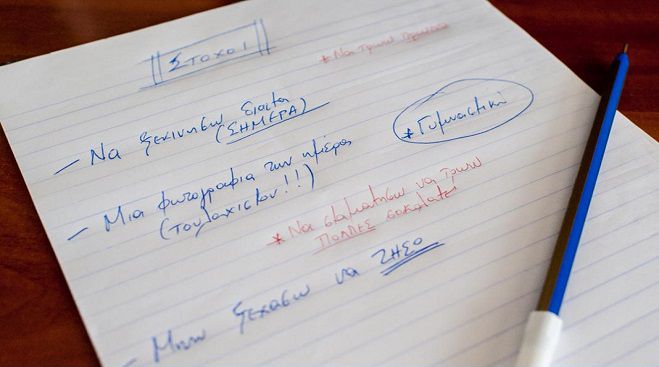 ΣΤΟΧΟΙ
* Να τρώω
– Να ξεκινήσω δίαιτα
(ΣΗΜΕΡΑ)
* Γυμναστική
– Μια φωτογραφία την ημέρα
(τουλάχιστον!!)
* Να σταματήσω να τρώω
ΠΟΛΛΕΣ σοκολάτες
– Μην ξεχάσω να ΖΗΣΩ